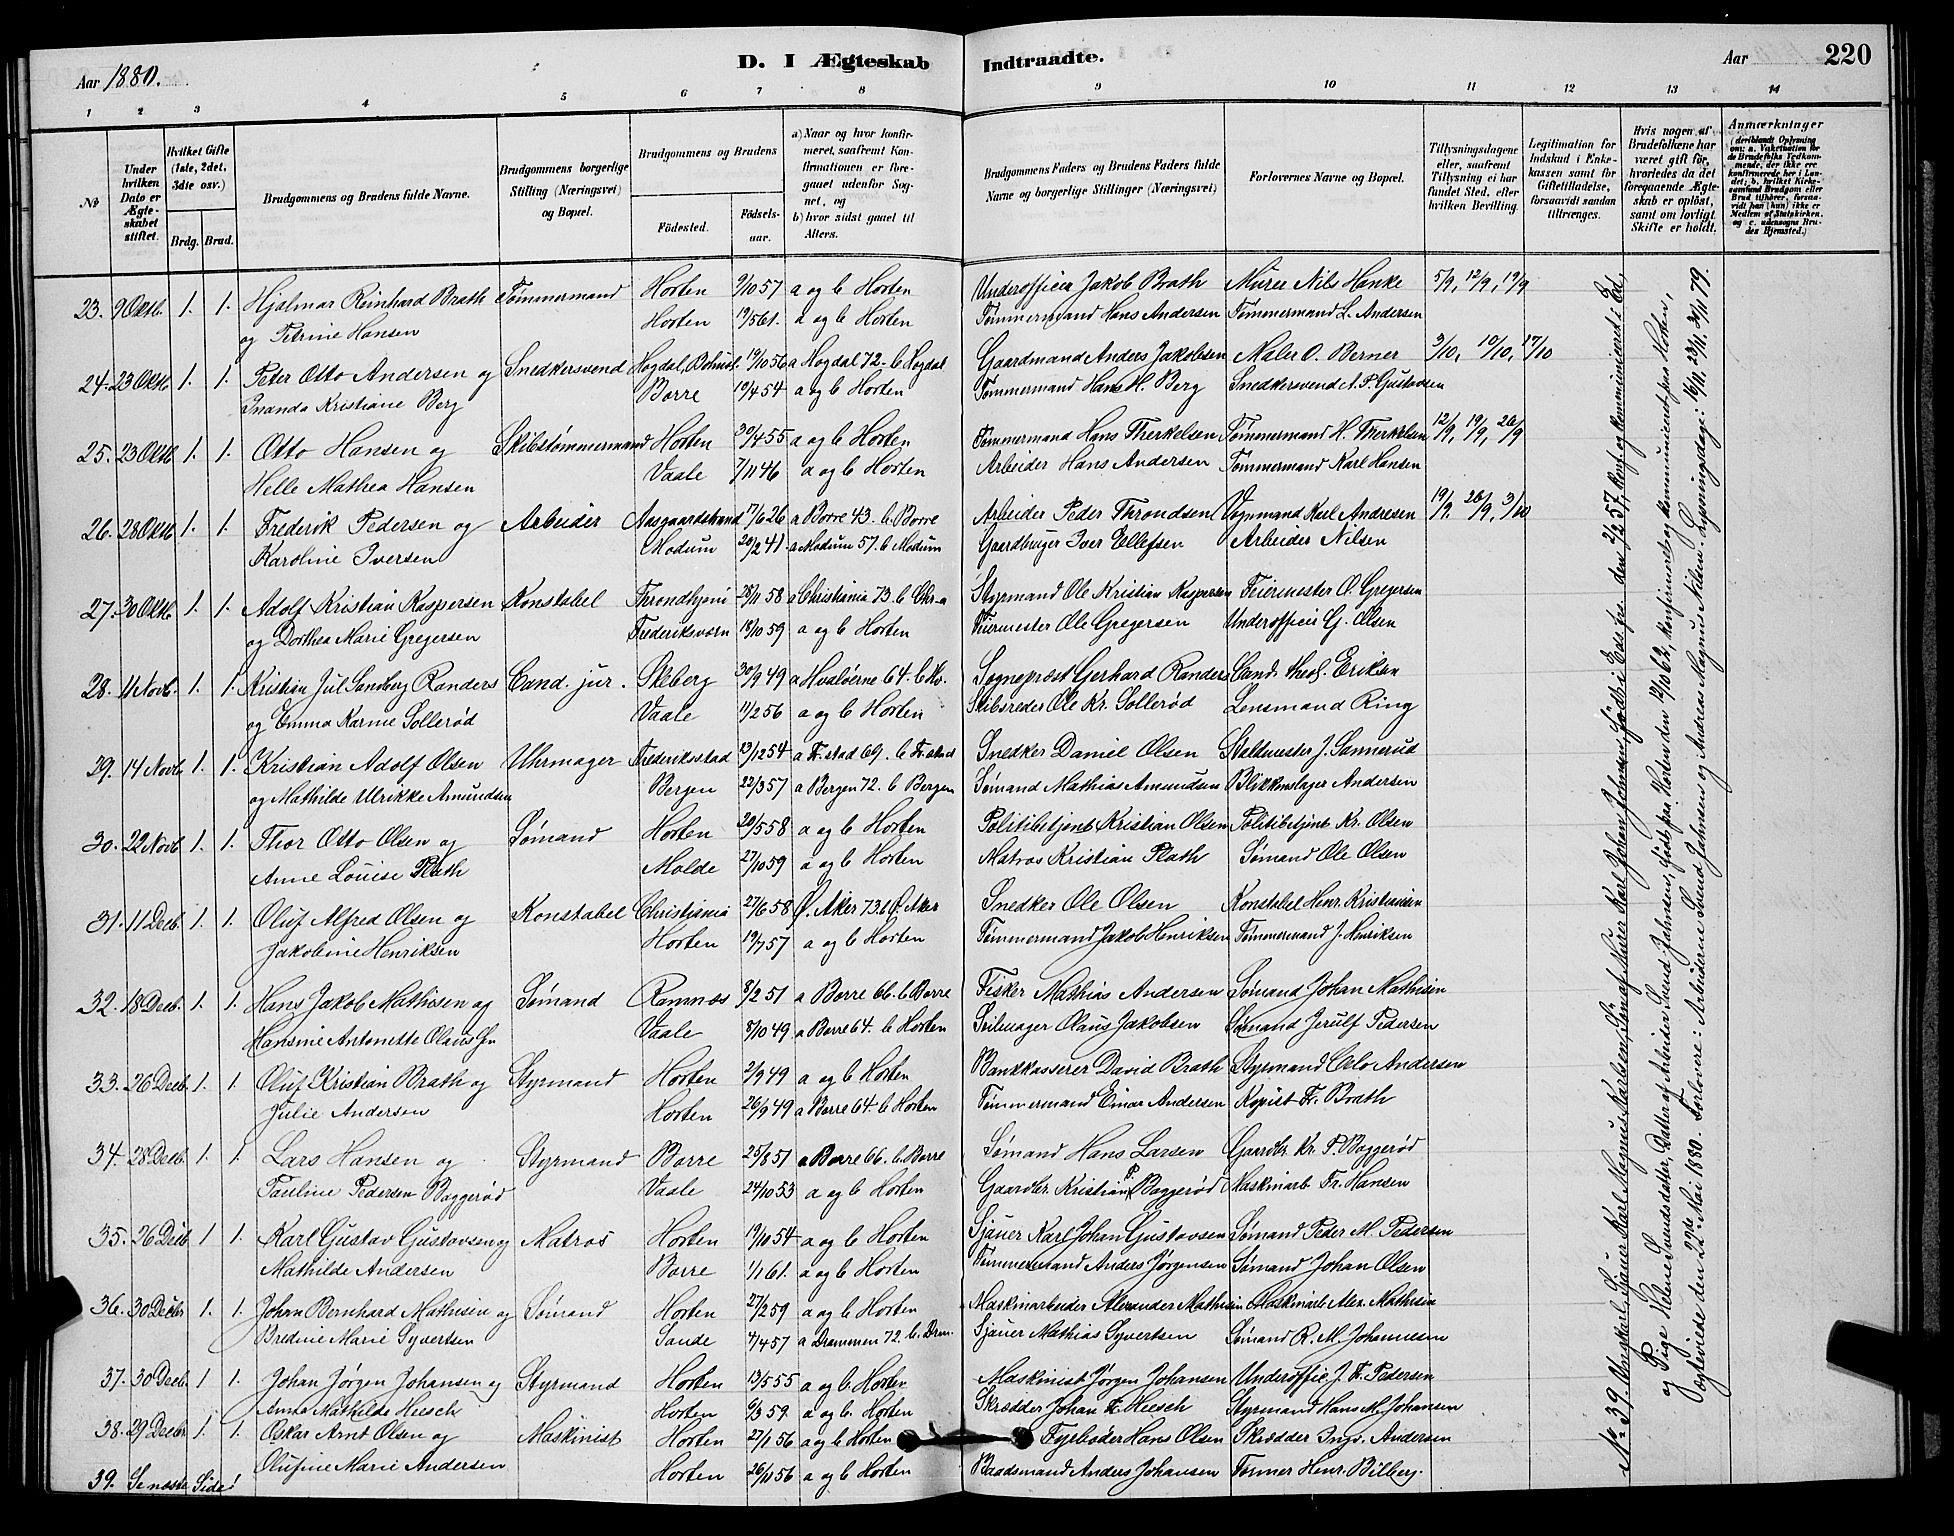 Aar 1880.
D. I Ægteskab Indtraadte.
Aar 220
1 2 3 4 5 6 7 8 9 10 11 12 13 14
No
Under hvilken Dato er Ægteskabet stiftet.
Hvilket Gifte (1ste, 2det, 3die osv.)
Brdg. Brud.
Brudgommens og Brudens fulde Navne.
Brudgommens borgerlige Stilling (Næringsvei) og Bopæl.
Brudgommens og Brudens
Fødested.
Fødselsaar.
a) Naar og hvor konfirmeret, saafremt Konfirmationen er foregaaet udenfor Sognet, og
b) hvor sidst gaaet til Alters.
Brudgommens Faders og Brudens Faders fulde Navne og borgerlige Stillinger (Næringsvei)
Forlovernes Navne og Bopæl.
Tillysningsdagene eller, saafremt Tillysning ei har fundet Sted, efter hvilken Bevilling.
Legitimation for Indskud i Enkekassen samt for Giftetilladelse, forsaavidt saadan tiltrænges.
Hvis nogen af Brudefolkene har været gift før, hvorledes da det foregaaende Ægteskab er opløst, samt om lovligt Skifte er holdt.
Anmærkninger
(deriblandt Oplysning om: a. Vakcination for de Brudefolks Vedkommende, der ikke ere konfirmerede her i Landet, b. hvilket Kirkesamfund Brudgom eller Brud tilhører, forsaavidt han (hun) ikke er Medlem af Statskirken, og c. udensogns Brudes Hjemsted.)
23. 9 Oktb. 1. 1. Hjalmar Reinhard Brath Tømmermand Horten 9/10 57 a og b Horten Underofficier Jakob Brath Murer Nils Hanke 5/9, 12/9, 19/9
og Petrine Hansen Horten 19/5 61. a og b Horten Tømmermand Hans Andersen Tømmermand L. Andersen
24. 23 Oktb. 1. 1. Peter Otto Andersen og Snedkersvend Hogdal, Bohusl. 19/10 56 a Hogdal 72 - b Hogdal Gaardmand Anders Jakobsen Maler O. Berner 3/10, 10/10, 17/10
Inanda Kristiane Berg Borre 19/4 54 a og b Horten Tømmermand Hans H. Berg Snedkersvend A. P. Gustavsen
25. 23 Oktb 1. 1. Otto Hansen og Skibstømmermand Horten 30/4 55 a og b Horten Tømmermand Hans Therkelsen Tømmermand H. Therkelsen 12/9, 19/9, 26/9
Helle Mathea Hansen Vaale 7/11 46 a og b Horten Arbeider Hans Andersen Tømmermand Karl Hansen
26. 28 Oktb 1. 1. Frederik Pedersen og Arbeider Aasgaardstrand 17/6 26 a Borre 43. b. Borre Arbeider Peder Throndsen Vognmand Karl Andresen 19/9. 26/9, 3/10
Karoline Iversen Modum 20/2 41. a Modum 57. b Modum Gaardbruger Iver Ellefsen Arbeider Nilsen
27. 30 Oktb 1. 1. Adolf Kristian Kaspersen Konstabel Throndhjem 28/11 58 a Christiania 73. b Chr-a Styrmand Ole Kristian Kaspersen Feiermester O. Gregersen
og Dorthea Marie Gregersen Frederiksværn 18/10 59 a og b Horten Feiermester Ole Gregersen Underofficier G. Olsen
28. 11 Novb. 1. 1. Kristian Jul Sandberg Randers Cand. jur. Fleberg 30/9 49 a Hvaløerne 64. b Ho. Sognepræst Gerhard Randers Cand. theol. Eriksen
og Emma Karine Sollerød Vaale 11/2 56 a og b Horten Skibsreder Ole Kr. Sollerød Lensmand Ring
29. 14 Novb 1. 1. Kristian Adolf Olsen Uhrmager Frederiksstad 13/12 54 a Fr.stad 69. b Fr.stad Snedker Daniel Olsen Staldmester J. Sannerud
og Mathilde Ulrikke Amundsen Bergen 22/3 57 a Bergen 72. b Bergen Sømand Mathias Amundsen Blikkenslager Andersen
30. 22 Novb 1. 1. Thor Otto Olsen og Sømand Horten 20/5 58 a og b Horten Politibetjent Kristian Olsen Politibetjent Kr. Olsen
Anne Louise Plath Molde 27/10 59 a og b Horten Matros Kristian Plath Sømand Ole Olsen
31. 11 Decb. 1. 1. Oluf Alfred Olsen og Konstabel Christiania 27/6 58 Ø. Aker 73. b Ø. Aker Snedker Ole Olsen Konstabel Henr. Kristiansen
Jakobine Henriksen Horten 19/7 57 a og b Horten Tømmermand Jakob Henriksen Tømmermand J. Henriksen
32. 18 Decb. 1. 1. Hans Jakob Mathisen og Sømand Ramnæs 8/2 51 a Borre 66. b Borre Fisker Mathias Andersen Sømand Johan Mathisen
Hansine Antonette Olausen Vaale 8/10 49 a Borre 64. b Horten Seilmager Olaus Jakobsen Sømand Jerulf Pedersen
33. 26 Decb. 1. 1. Oluf Kristian Brath og Styrmand Horten 2/9 49 a og b Horten Bankkasserer David Brath Styrmand Oslo Andersen
Julie Andersen Horten 26/9 49 a Borre 64. b Horten Tømmermand Einar Andersen Kopist Fr. Brath
34. 28 Decb. 1. 1. Lars Hansen og Styrmand Borre 25/8 51 a Borre 66. b. Borre Sømand Hans Larsen Gaardbr. Kr. P. Baggerød
Pauline Pedersen Baggerød Vaale 24/10 53 a og b Horten Gaardbr. Kristian P. Baggerød Maskinarb. Fr. Hansen
35. 26 Decb 1 1. Karl Gustav Gustavsen og Matros Horten 19/10 54 a og b Horten Sjauer Karl Johan Gustavsen Sømand Peder M. Pedersen
Mathilde Andersen Borre 1/1 61. a og b Horten Tømmermand Anders Jørgensen Sømand Johan Olsen
36. 30 Decbr 1. 1. Johan Bernhard Mathisen og Sømand Horten 27/2 59 a og b Horten Maskinarbeider Alexander Mathisen Maskinarb. Alex. Mathisen
Bredine Marie Syvertsen Sande 4/4 57 a Drammen 72. b. Dram. Sjauer Mathias Syvertsen Sømand R. M. Johannesen
37. 30 Decb. 1 1. Johan Jørgen Johansen og Styrmand Horten 13/5 55 a og b. Horten Maskinist Jørgen Johansen Underoffic. J. F. Pedersen
Anna Mathilde Hiesch Horten 6/3 59 a og b. Horten Skrædder Johan F. Hiesch Styrmand Hans M. Johansen
38. 29 Decbr 1. 1. Oskar Arnt Olsen og Maskinist Horten 27/1 56 a og b Horten Fyrbøder Hans Olsen Skrædder Ingv. Andersen
Olufine Marie Andersen Horten 26/11 56 a og b Horten Baadsmand Anders Johansen Former Henr. Bilberg.
39. Se næste Side!
No 39. Ungkarl, Sjauer Karl Magnus Karlsen, Søn af Murer Karl Johan Johnsen, født i Ed, den 2/2 57, konf. og kommuniceret i Ed,
og Pige Helene Svendsdatter, Datter af Arbeider Svend Jahnsen, født paa Horten den 12/10 62, konfirmeret og kommuniceret paa Horten,
Ægteviede den 22de Mai 1880. Forlovere: Arbeiderne Svend Jahnsen og Andreas Magnus Nilsen. Lysningsdage: 16/11, 23/11, 30/11 79.